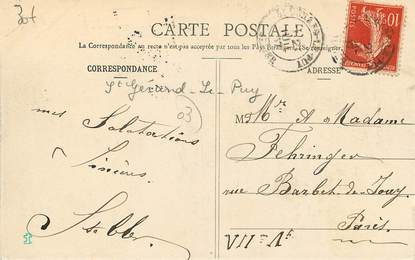 30f
CARTE POSTALE
La Correspondance au recto n'est pas acceptée par tous les Pays Étrangers. (Se renseigner
CORRESPONDANCE
ADRESSE
St Gérand-Le-Puy
03
mes Salutations
Sincères
M Mr & Madame
Fehringer
rue Barbet-de-Jouy
Paris
VII=
10
POSTES